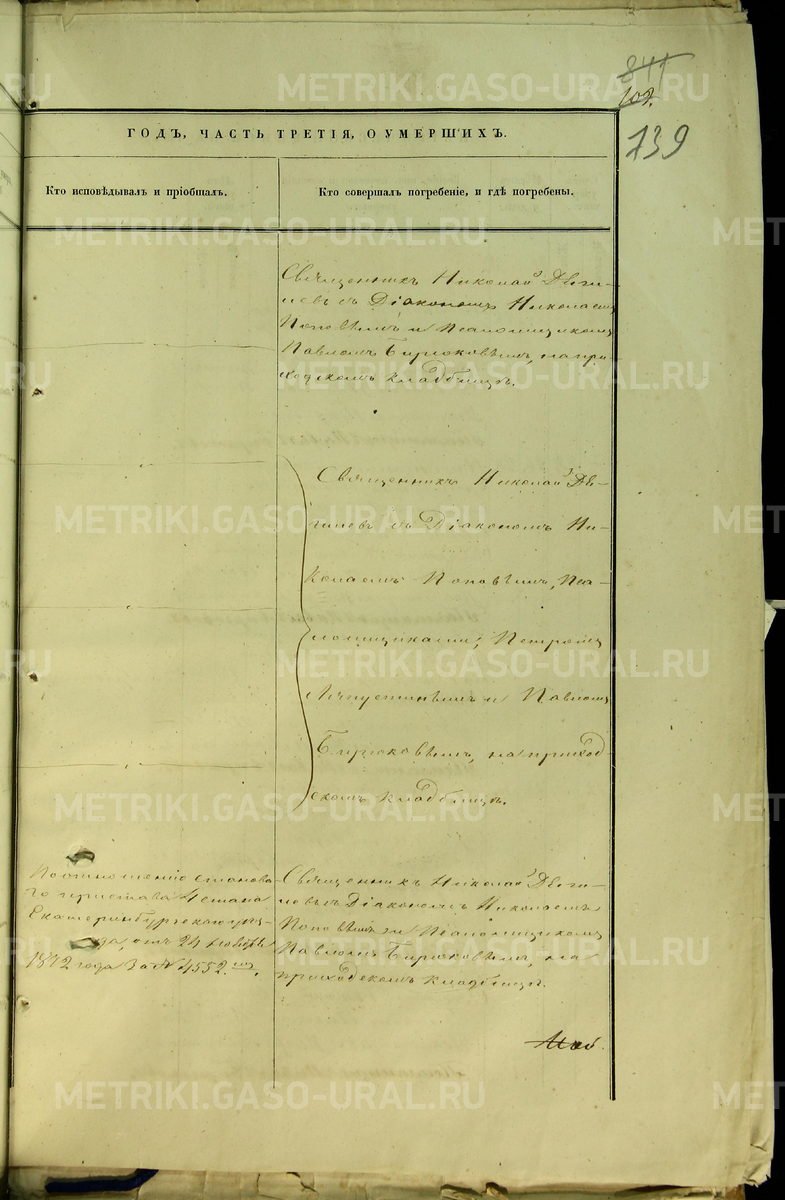 841
102.
739
ГОДЪ, ЧАСТЬ ТРЕТІЯ, О УМЕРШИХЪ.
Кто исповѣдывалъ и пріобщалъ.
Кто совершалъ погребеніе, и гдѣ погребены.
Священникъ Николай
съ Діакономъ Николаемъ
Поповымъ и Псаломщикомъ
Павломъ Бирюковымъ, на при-
ходскомъ кладбищѣ.
Священникъ Николай
съ Діакономъ Ни-
колаемъ Поповымъ, Пса-
ломщиками; Петромъ
и Павломъ
Бирюковымъ, на приход
скомъ кладбищѣ.
По отношенію станова-
го пристава стана
Екатеринбургскаго уѣз-
да, отъ 24 Ноября
1872 года за № 4552.
Священникъ Николай
съ Діакономъ Николаемъ
Поповымъ и Псаломщикомъ
Павломъ Бирюковымъ, на
приходскомъ кладбищѣ.
METRIKI.GASO-URAL.RU